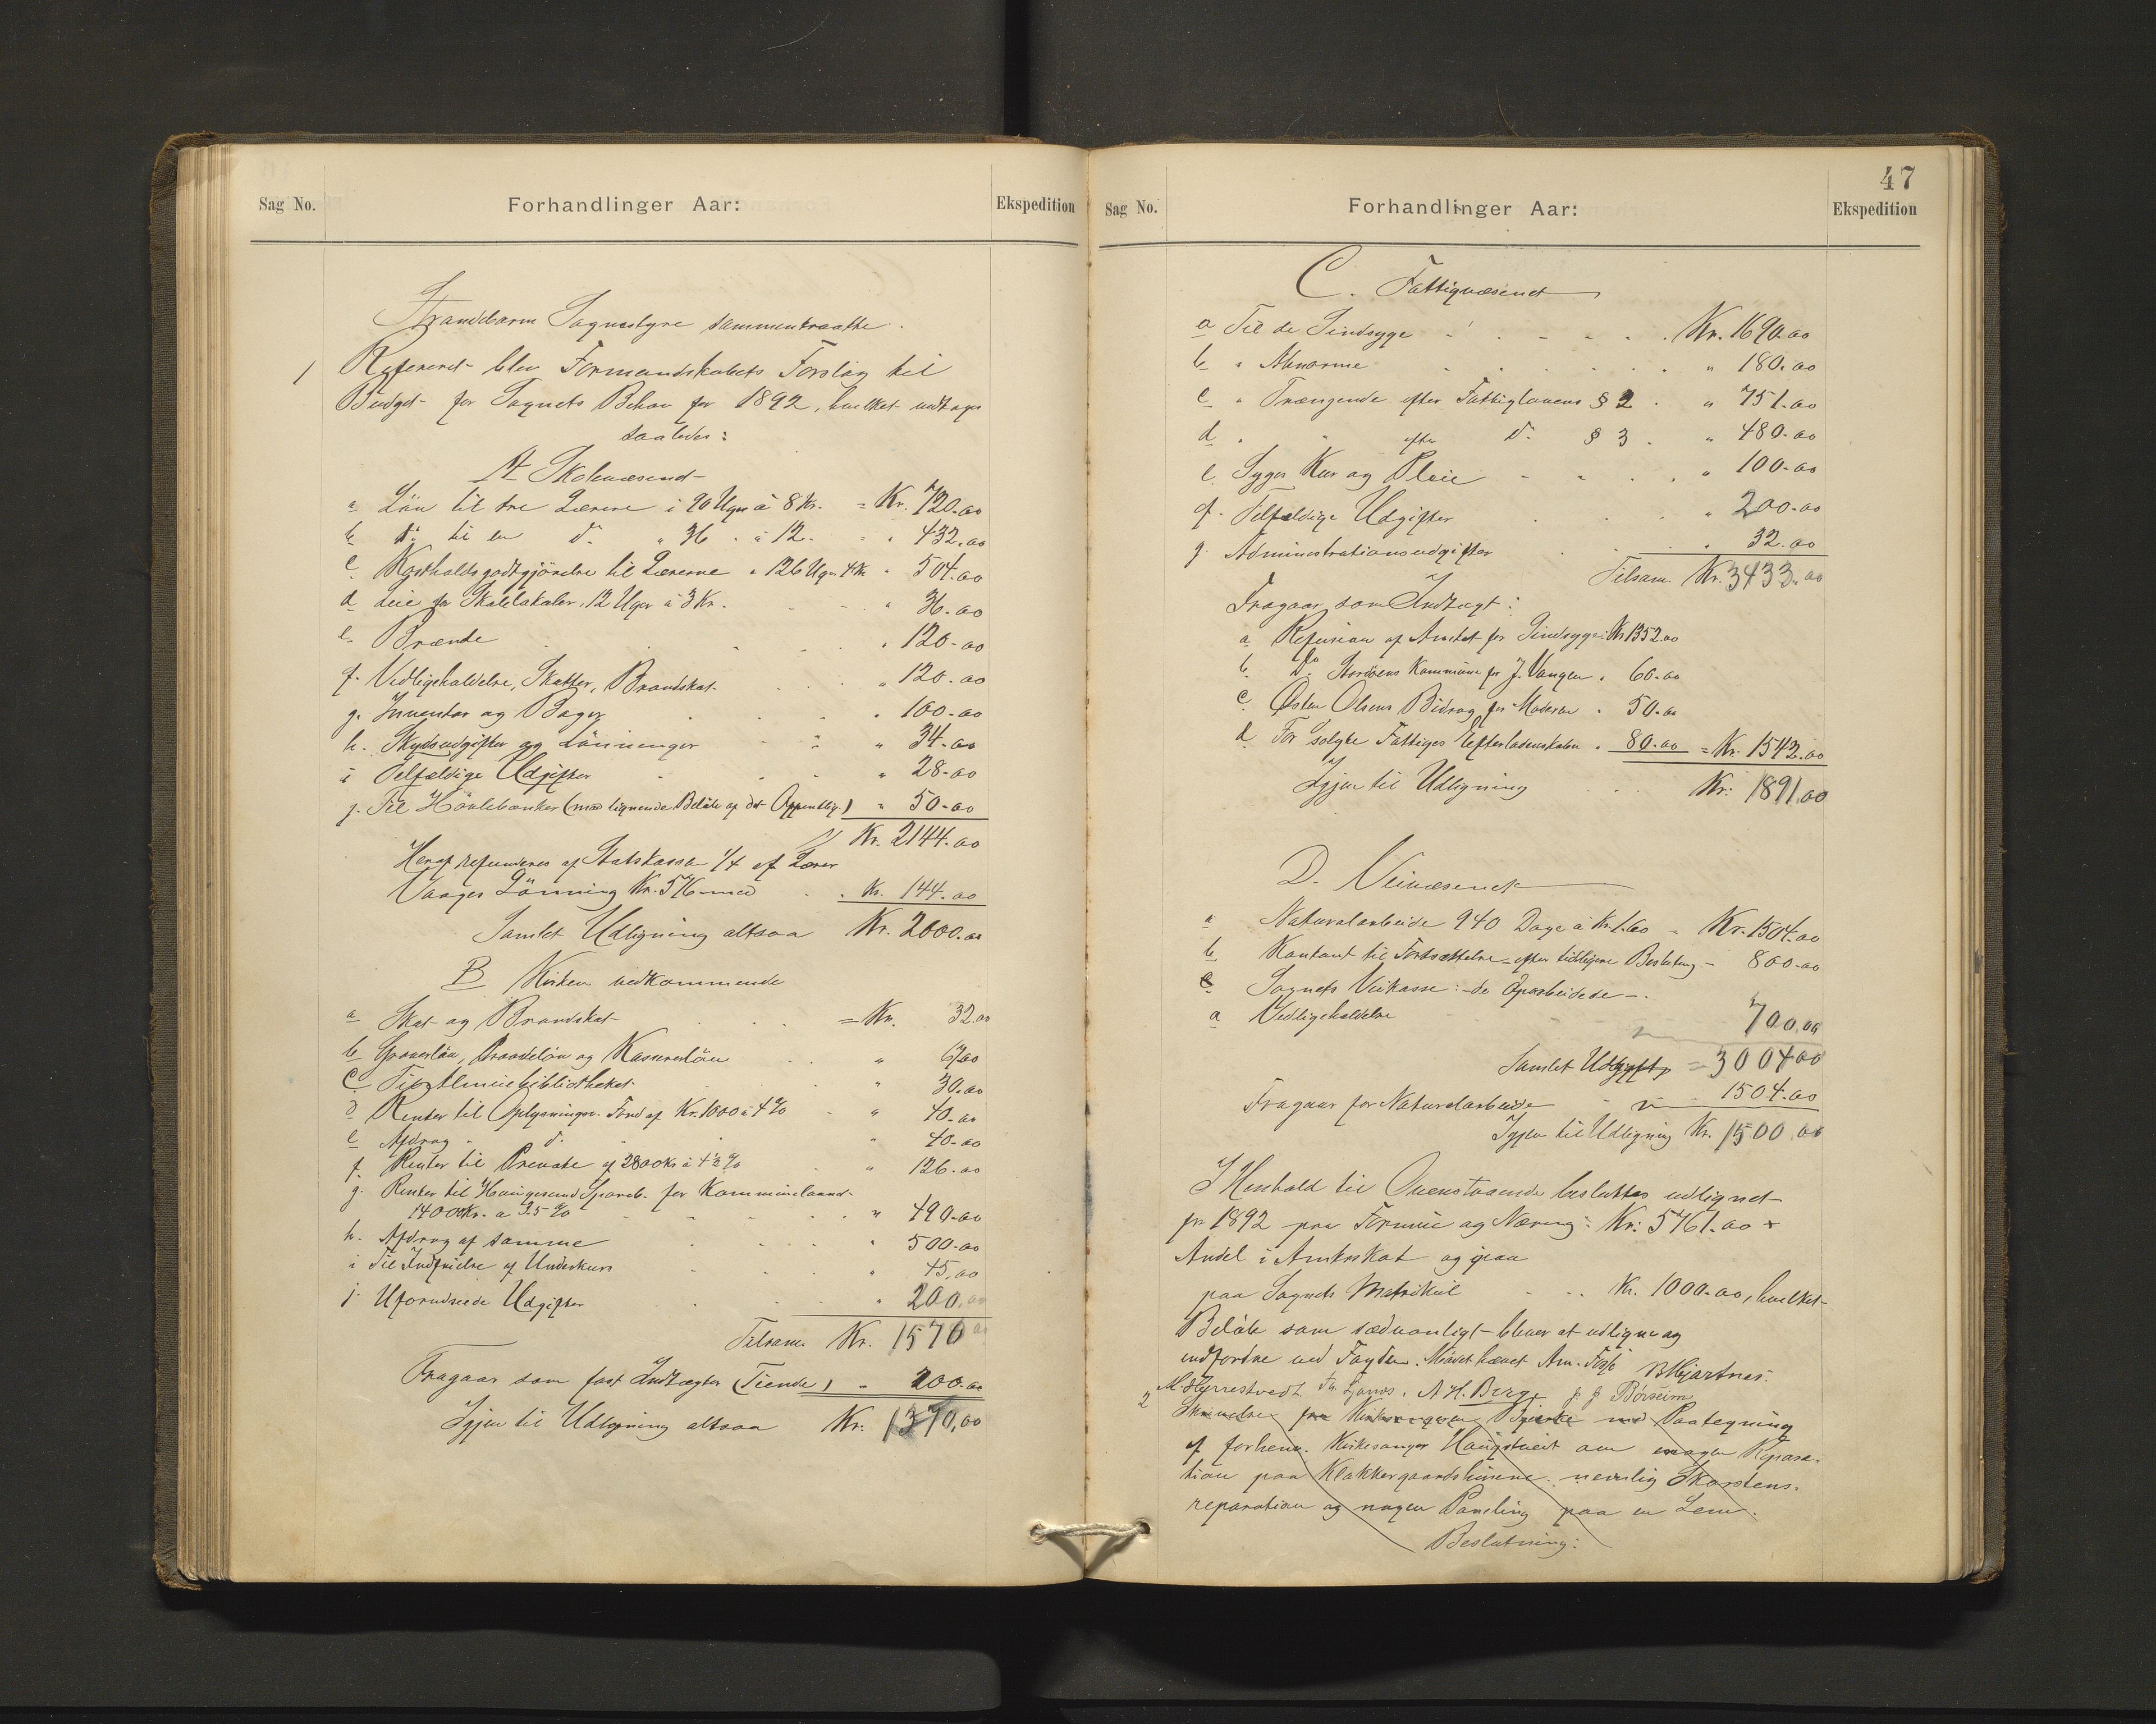 Sag No.
Forhandlinger Aar:
Ekspedition
Strandebarm Sognestyre sammentraatte.
1 Refereret blev Formandskabets Forslag til
Budget for Sognets Behov for 1892, hvilket vedtages
saaledes:
A Skolevæsend
a Løn til tre Lærere i 90 Uger à 8 Kr. = Kr. 720.00
b D. til en D. " 36 " à 12. " " 432.00
c Kostholdsgodtgjørelse til Lærerne " 126 Uger 4 Kr " 504.00
d Leie for Skolelokaler, 12 Uger à 3 Kr. " 36.00
e. Brænde " 120.00
f. Vedligeholdelse, Skatter, Brandskat " 120.00
g. Inventar og Bøger " 100.00
h. Skydsudgifter og Lønninger " 34.00
i Tilfældige Udgifter " 28.00
j. Til Høvlebænker (med lignende Beløb af det Oppentlige) " 50.00
Kr. 2144.00
Heraf refunderes af Statskassen 1/4 af Lærer
Vaages Lønning Kr. 576 med Kr. 144.00
Samlet Udligning altsaa Kr. 2000.00
B Kirken vedkommende
a Skat og Brandskat = Kr. 32.00
b Graverløn, Provsteløn og Kassererløn " 67.00
c Til Almuebibliotheket " 30.00
d Renter til Oplysningsv. Fond af Kr. 1000 à 4 % " 40.00
e Afdrag " d. " 40.00
f. Renter til Private af 2800 Kr à 4½ % " 126.00
g. Renter til Haugesund Spareb. for Kommunelaanet
14000 Kr. a 3.5 % " 490.00
h. Afdrag af samme " 500.00
i Til Indfrielse af Underkurs " 45,00
j. Uforudseede Udgifter " 200.00
Tilsam. Kr. 1570 00
Fragaar som fast Indtægter (Tiende) " 200.00
Igjen til Udligning altsaa Kr. 1370,00
47
Sag No.
Forhandlinger Aar:
Ekspedition
C. Fattigvæsenet
a Til de Sindsyge Kr. 1690.00
b " Abnorme " 180.00
c " Trængende efter Fattiglovens § 2 " 751.00
d " " efter D. § 3 " 480.00
e. Syges Kur og Pleie " 100.00
f. Tilfældige Udgifter " 200.00
g. Administrationsudgifter " 32.00
Tilsam. Kr. 3433.00
Fragaar som Indtægt:
a Refusion af Amtet for Sindsyge: Kr 1352.00
b. Do Stordøens Kommune for J. Vangen " 60.00
c. Østen Olsens Bidrag for Moderen " 50.00
d For solgte Fattiges Efterladenskaber " 80.00 = Kr. 1542.00
Igjen til Udligning Kr: 1891.00
D. Veivæsenet
a Naturalarbeide 940 Dage à Kr. 1.60 = Kr. 1504.00
b Kontant til Fortsættelse efter tidligere Beslutning - 800.00
c Sognets Veikasse: de Oparbeidede -.
a Vedligeholdelse 700,00
Samlet Udgift = 3004 00
Fragaar for Naturalarbeide 1504.00
Igjen til Udligning Kr. 1500.00
I Henhold til Ovenstaaende besluttes udlignet
for 1892 paa Formue og Næring: Kr: 5761.00 +
Andel i Amtsskat og paa
paa Sognets Matrikul Kr. 1000.00, hvilket
Beløb som sædvanligt bliver at udligne og
indfordre ved Fogden. Mødet hævet Arn. Fosse B Hjartnes.
M Hyrrestvedt A H. Berge J. J. Børsheim
2 Skrivelse fra Kirkesanger Bjerke med Paategning
af forhenv. Kirkesanger Haugstveit om nogen Repara-
tion paa Klokkergaardshusene nemlig Skorstens-
reparation og nogen Paneling paa en Lem.
Beslutning: